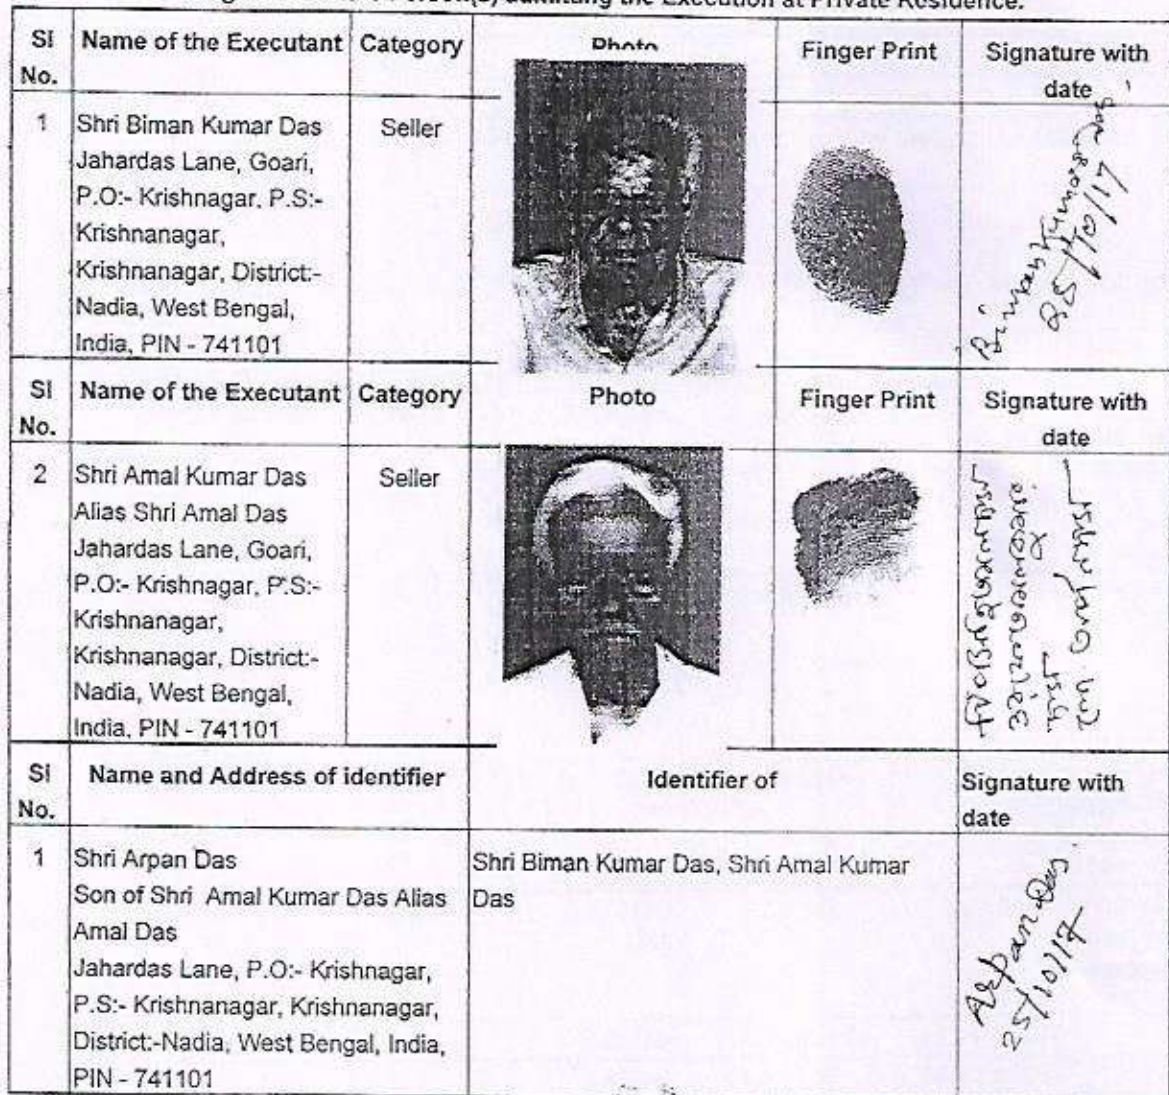 admitting the Execution at Private Residence.
Sl No. Name of the Executant Category Photo Finger Print Signature with date
1 Shri Biman Kumar Das Seller
Jahardas Lane, Goari,
P.O:- Krishnagar, P.S:-
Krishnanagar,
Krishnanagar, District:-
Nadia, West Bengal,
India, PIN - 741101
Biman Kumar Das
25/10/17
Sl No. Name of the Executant Category Photo Finger Print Signature with date
2 Shri Amal Kumar Das Seller
Alias Shri Amal Das
Jahardas Lane, Goari,
P.O:- Krishnagar, P.S:-
Krishnanagar,
Krishnanagar, District:-
Nadia, West Bengal,
India, PIN - 741101
Sl No. Name and Address of identifier Identifier of Signature with date
1 Shri Arpan Das Shri Biman Kumar Das, Shri Amal Kumar
Son of Shri Amal Kumar Das Alias Das
Amal Das
Jahardas Lane, P.O:- Krishnagar,
P.S:- Krishnanagar, Krishnanagar,
District:-Nadia, West Bengal, India,
PIN - 741101
Arpan Das
25/10/17